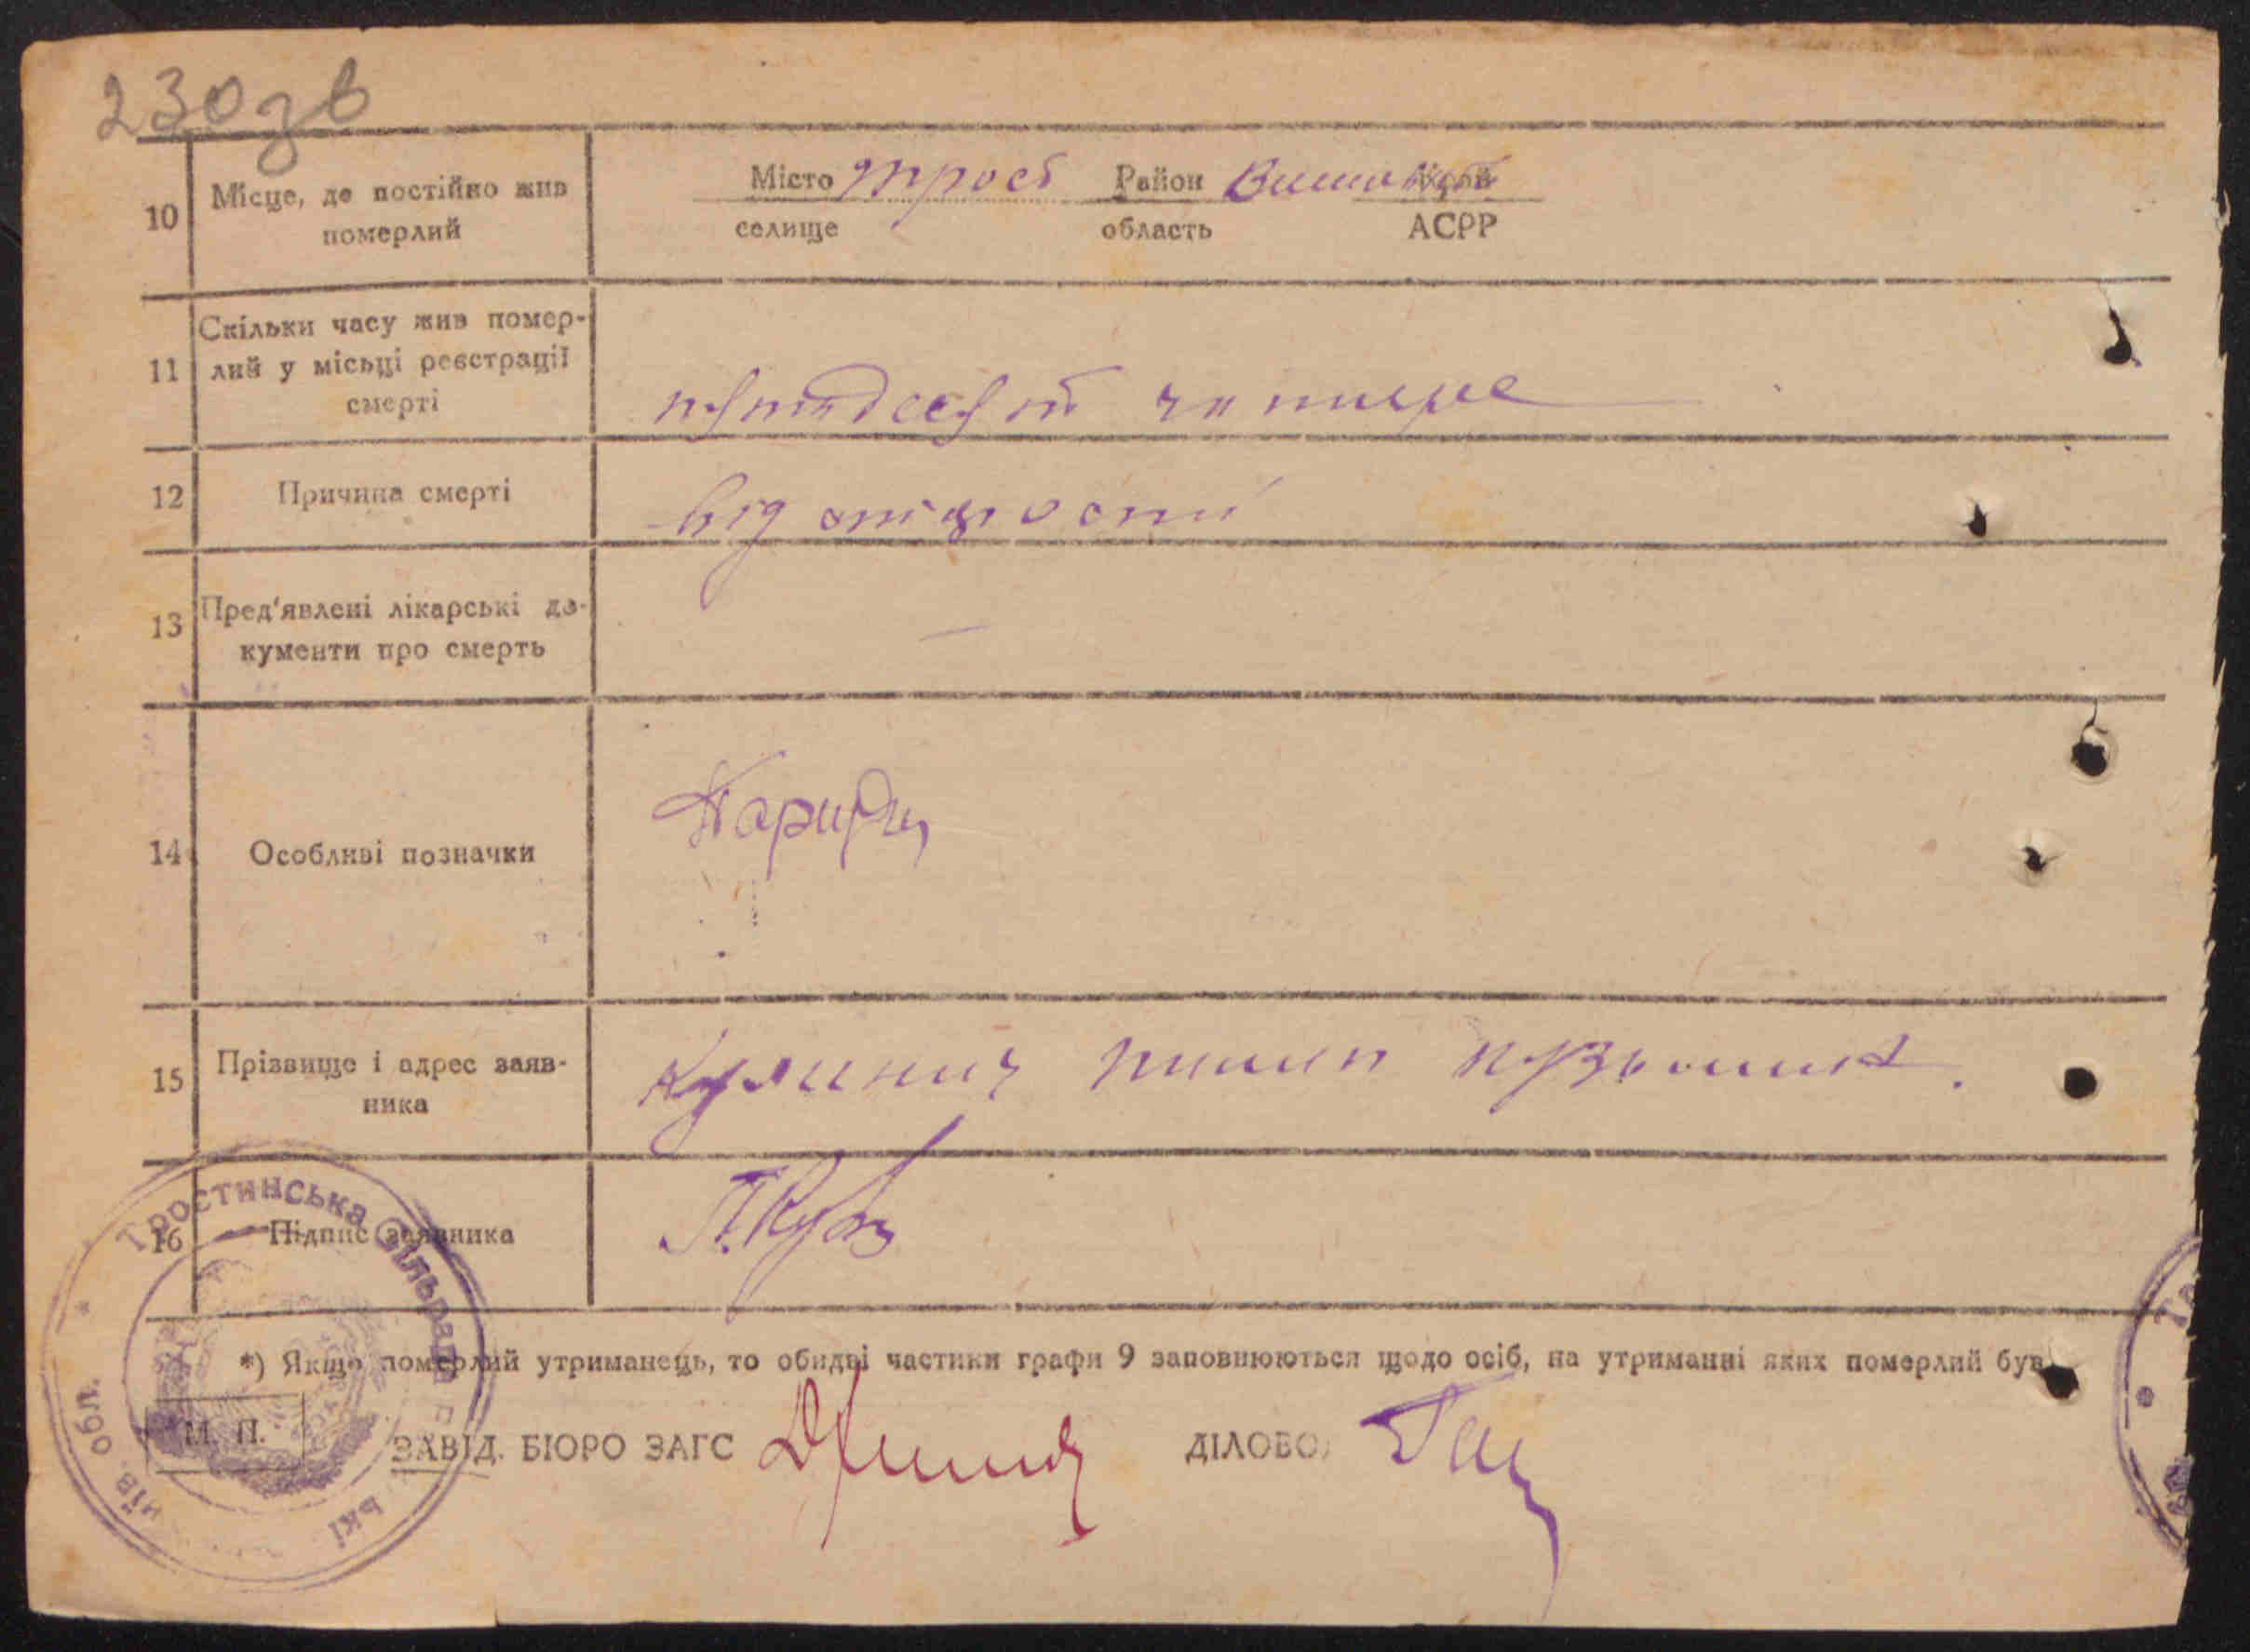 230зв
10 Місце, де постійно жив померлий
Місто Трост Район Край
селище область АСРР
11 Скільки часу жив помер-
лий у місьці реєстрації
смерті
пятьдесят чотире
12 Причина смерті
від старості
13 Пред'явлені лікарські до-
кументи про смерть
—
14 Особливі позначки
15 Прізвище і адрес заяв-
ника
Кулинич пилип
16 Підпис заявника
Тростинська Сільрада
*) Якщо померлий утриманець, то обидві частини графи 9 заповнюються щодо осіб, на утриманні яких померлий був
М. П.
ЗАВІД. БЮРО ЗАГС ДІЛОВОД
обл.